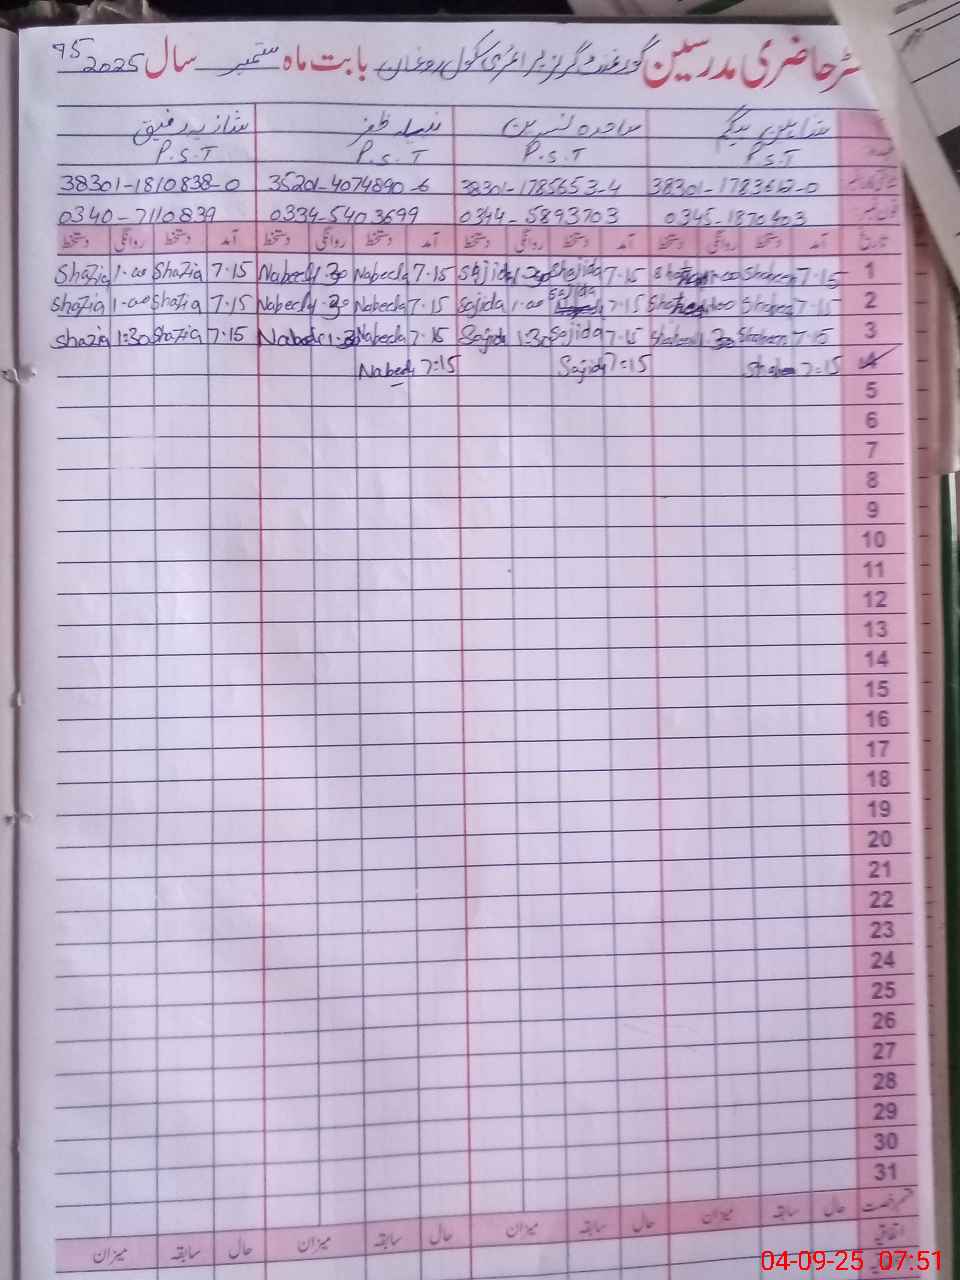 رجسٹر حاضری مدرسین گورنمنٹ گرلز پرائمری سکول بابت ماہ ستمبر سال 2025
شاہین بیگم ساجدہ نسرین نبیلہ ظفر شازیہ رفیق
P.S.T P.S.T P.S.T P.S.T
38301-1810838-0 35201-4074890-6 38301-1785653-4 38301-1783612-0
0340-7110839 0334-5403699 0344-5893703 0345-1870403
تاریخ آمد دستخط روانگی دستخط آمد دستخط روانگی دستخط آمد دستخط روانگی دستخط آمد دستخط روانگی دستخط
Shazia 1-00 Shazia 7-15 Nabeela 1-30 Nabeela 7-15 Sajida Shajida 7-15 Shaheen 7-15 1
Shazia 1-00 Shazia 7-15 Nabeela 1-30 Nabeela 7-15 Sajida 1-00 Sajida 7-15 Shaheen 7-15 2
Shazia 1:30 Shazia 7-15 Nabeela 1-30 Nabeela 7-15 Sajida 1-30 Sajida 7-15 Shaheen 7-15 3
Nabeela 7:15 Sajida 7:15 7:15 4
5
6
7
8
9
10
11
12
13
14
15
16
17
18
19
20
21
22
23
24
25
26
27
28
29
30
31
حال سابقہ میزان حال سابقہ میزان حال سابقہ میزان حال سابقہ میزان
اتفاقیہ
04-09-25 07:51